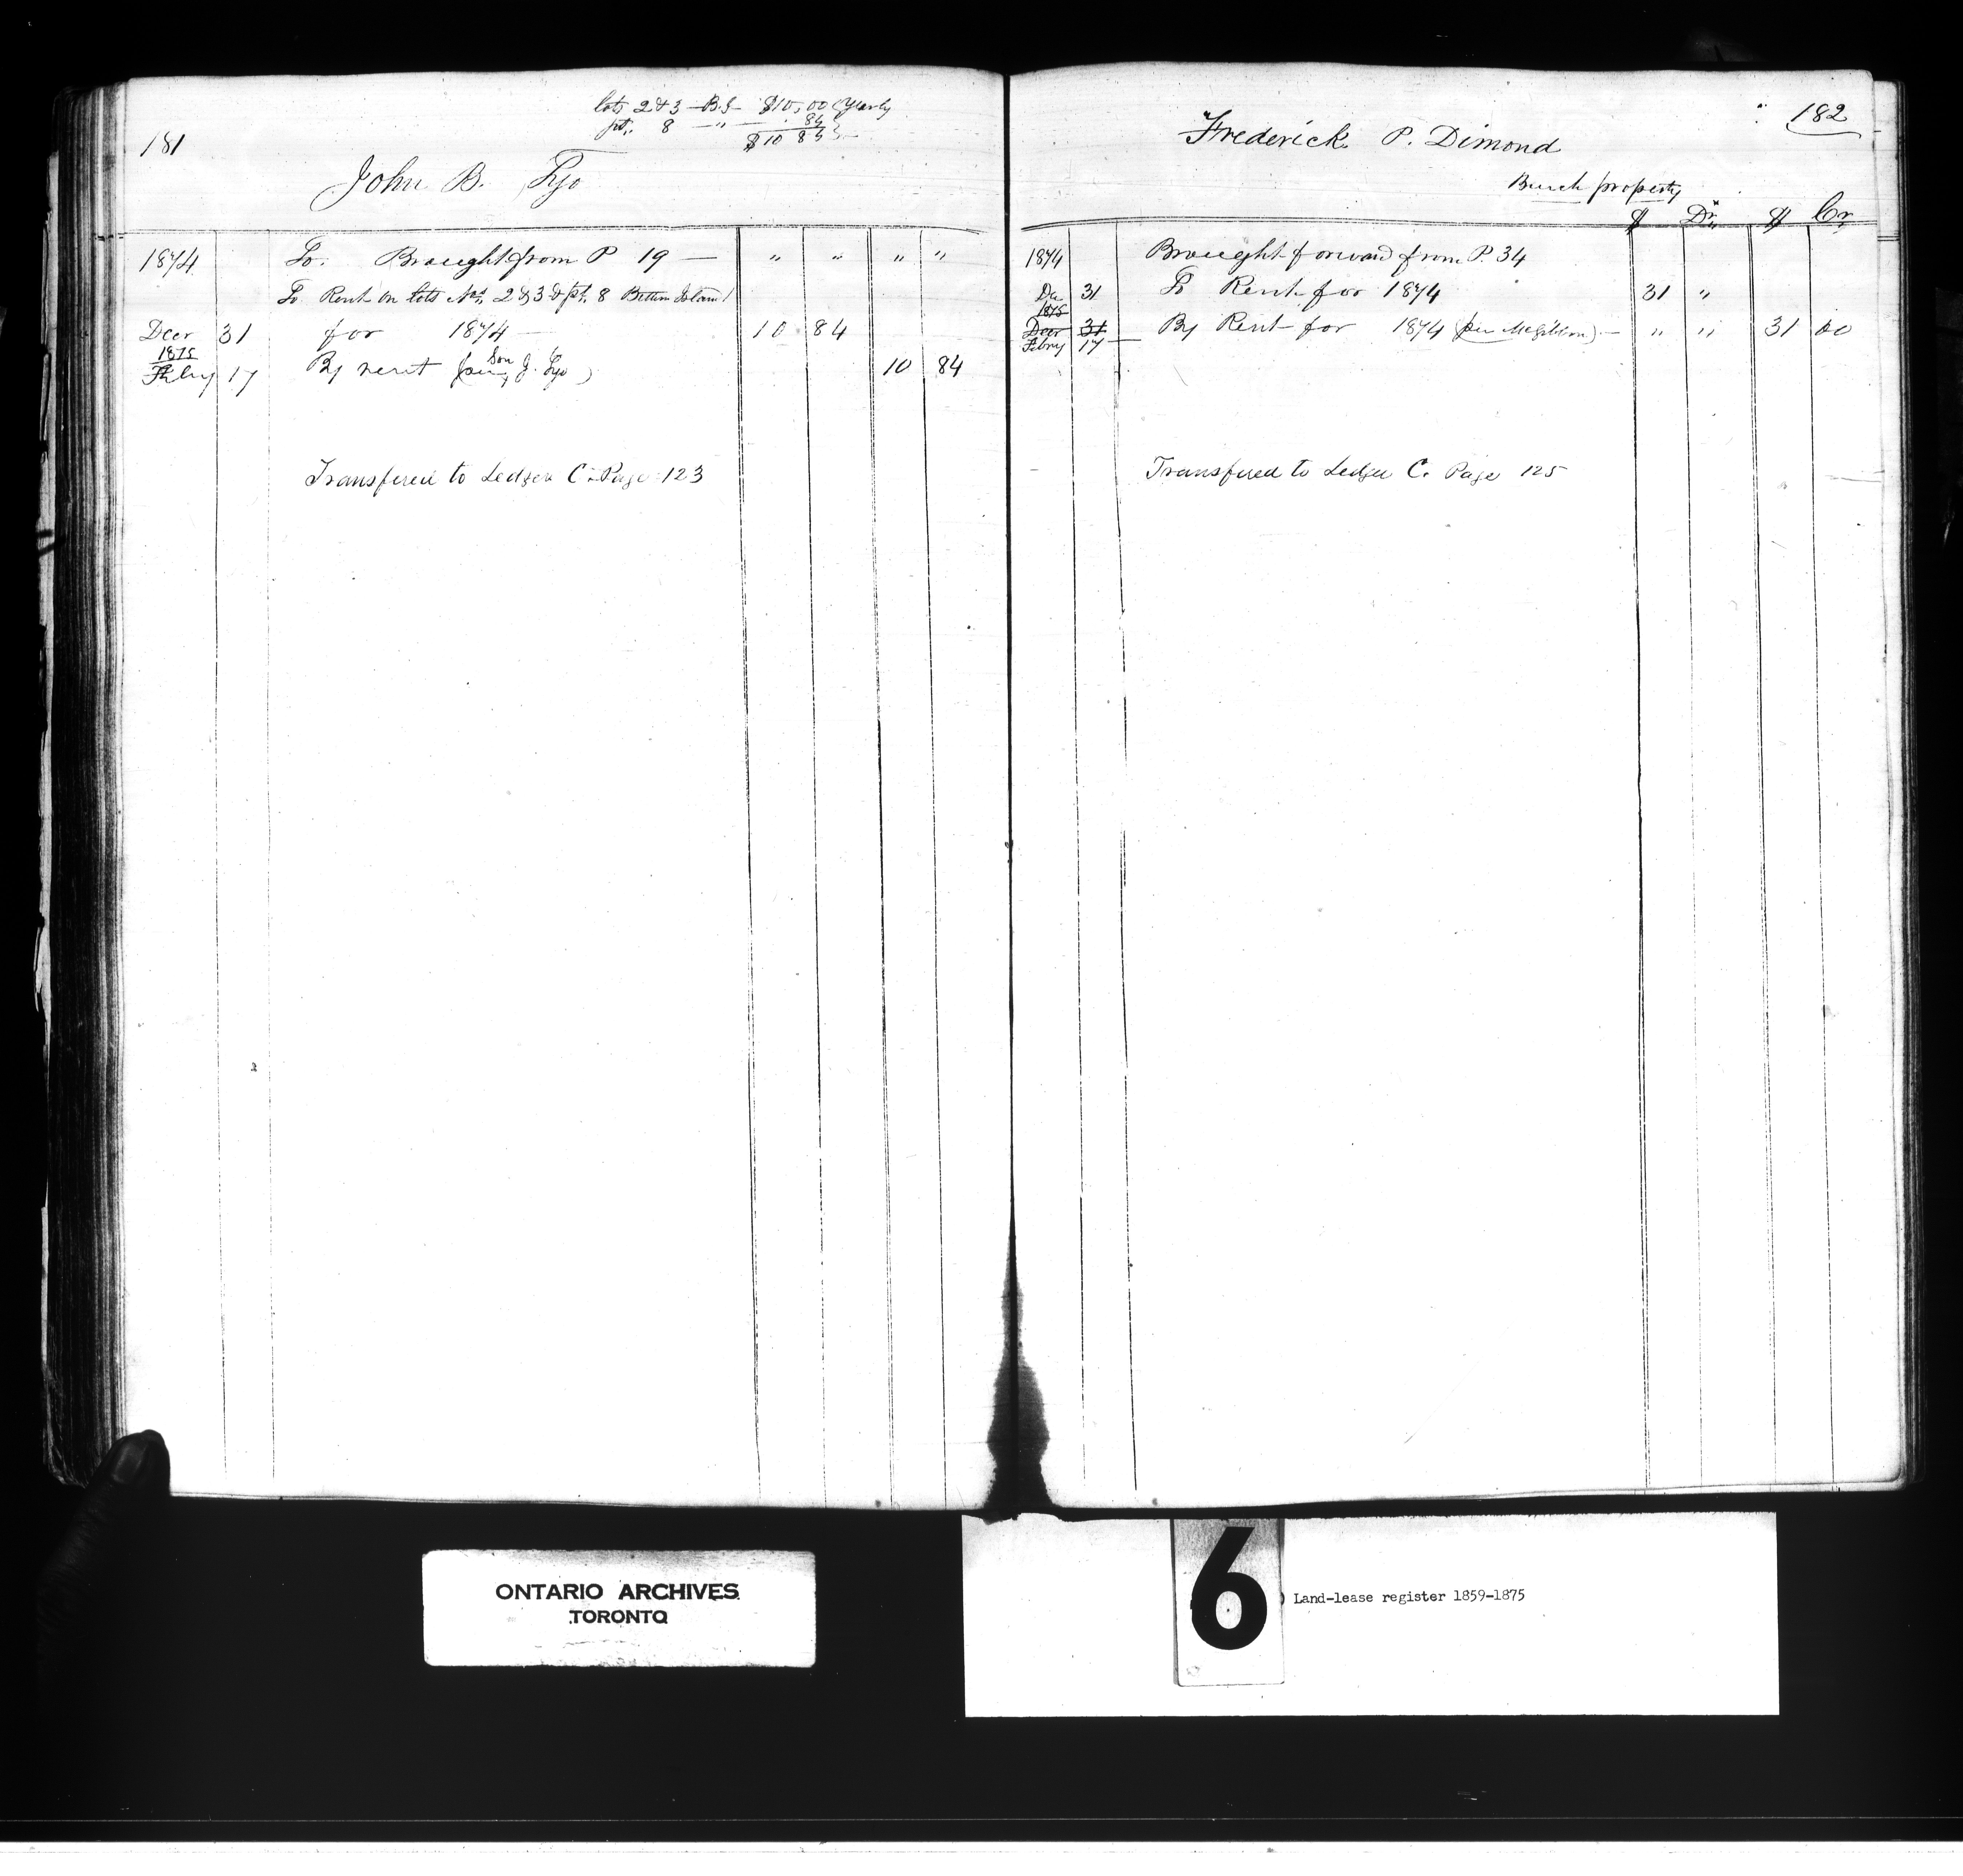 181
lots 2 & 3 — B.I — $10,00 } Yearly
pt. 8 — " — 84 }
$10 84
John B. Tyo
1874 To. Brought from P 19 — " " " "
To Rent on lots Nos. 2 & 3 & pt. 8 Island
Decr 31 for 1874 — 10 84
1875
Febry 17 By rent (per Son J. Tyo) 10 84
Transfered to Ledger C. Page 123
182
Frederick P. Dimond
property
$ Dr. $ Cr.
1874 Brought forward from P. 34
De 31 To Rent for 1874 31 "
1875
Decr 31 By Rent for 1874 (per McGibbon) — " " 31 00
Febry 17
Transfered to Ledger C. Page 125
ONTARIO ARCHIVES
TORONTO
6
) Land-lease register 1859-1875